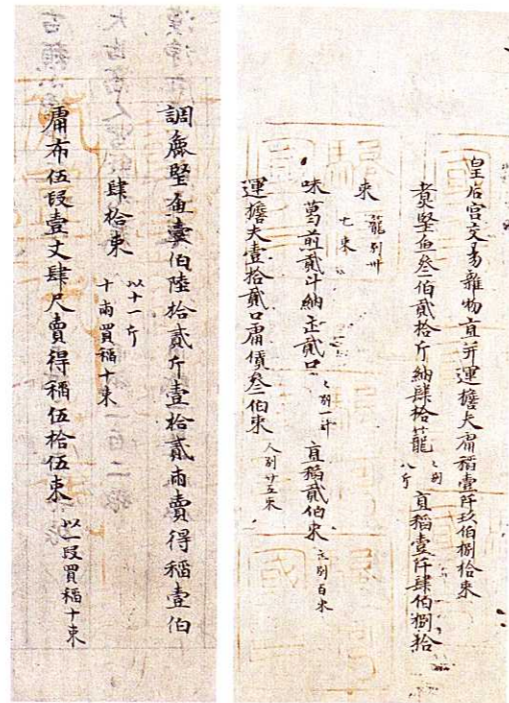 皇后宮交易雜物直并運擔夫庸稲壹阡玖伯捌拾束
煮堅魚參伯貳拾斤納肆拾籠 〻別八斤 直稲壹阡肆伯捌拾
束 籠別卅七束
味葛煎貳斗納缶貳口 〻別一斗 直稲貳伯束 缶別百束
運擔夫壹拾貳口庸賃參伯束 人別廿五束
調麁堅魚壹伯陸拾貳斤壹拾貳兩賣得稲壹伯
肆拾束 以十一斤十兩買稲十束
庸布伍段壹丈肆尺賣得稲伍拾伍束 以一段買稲十束